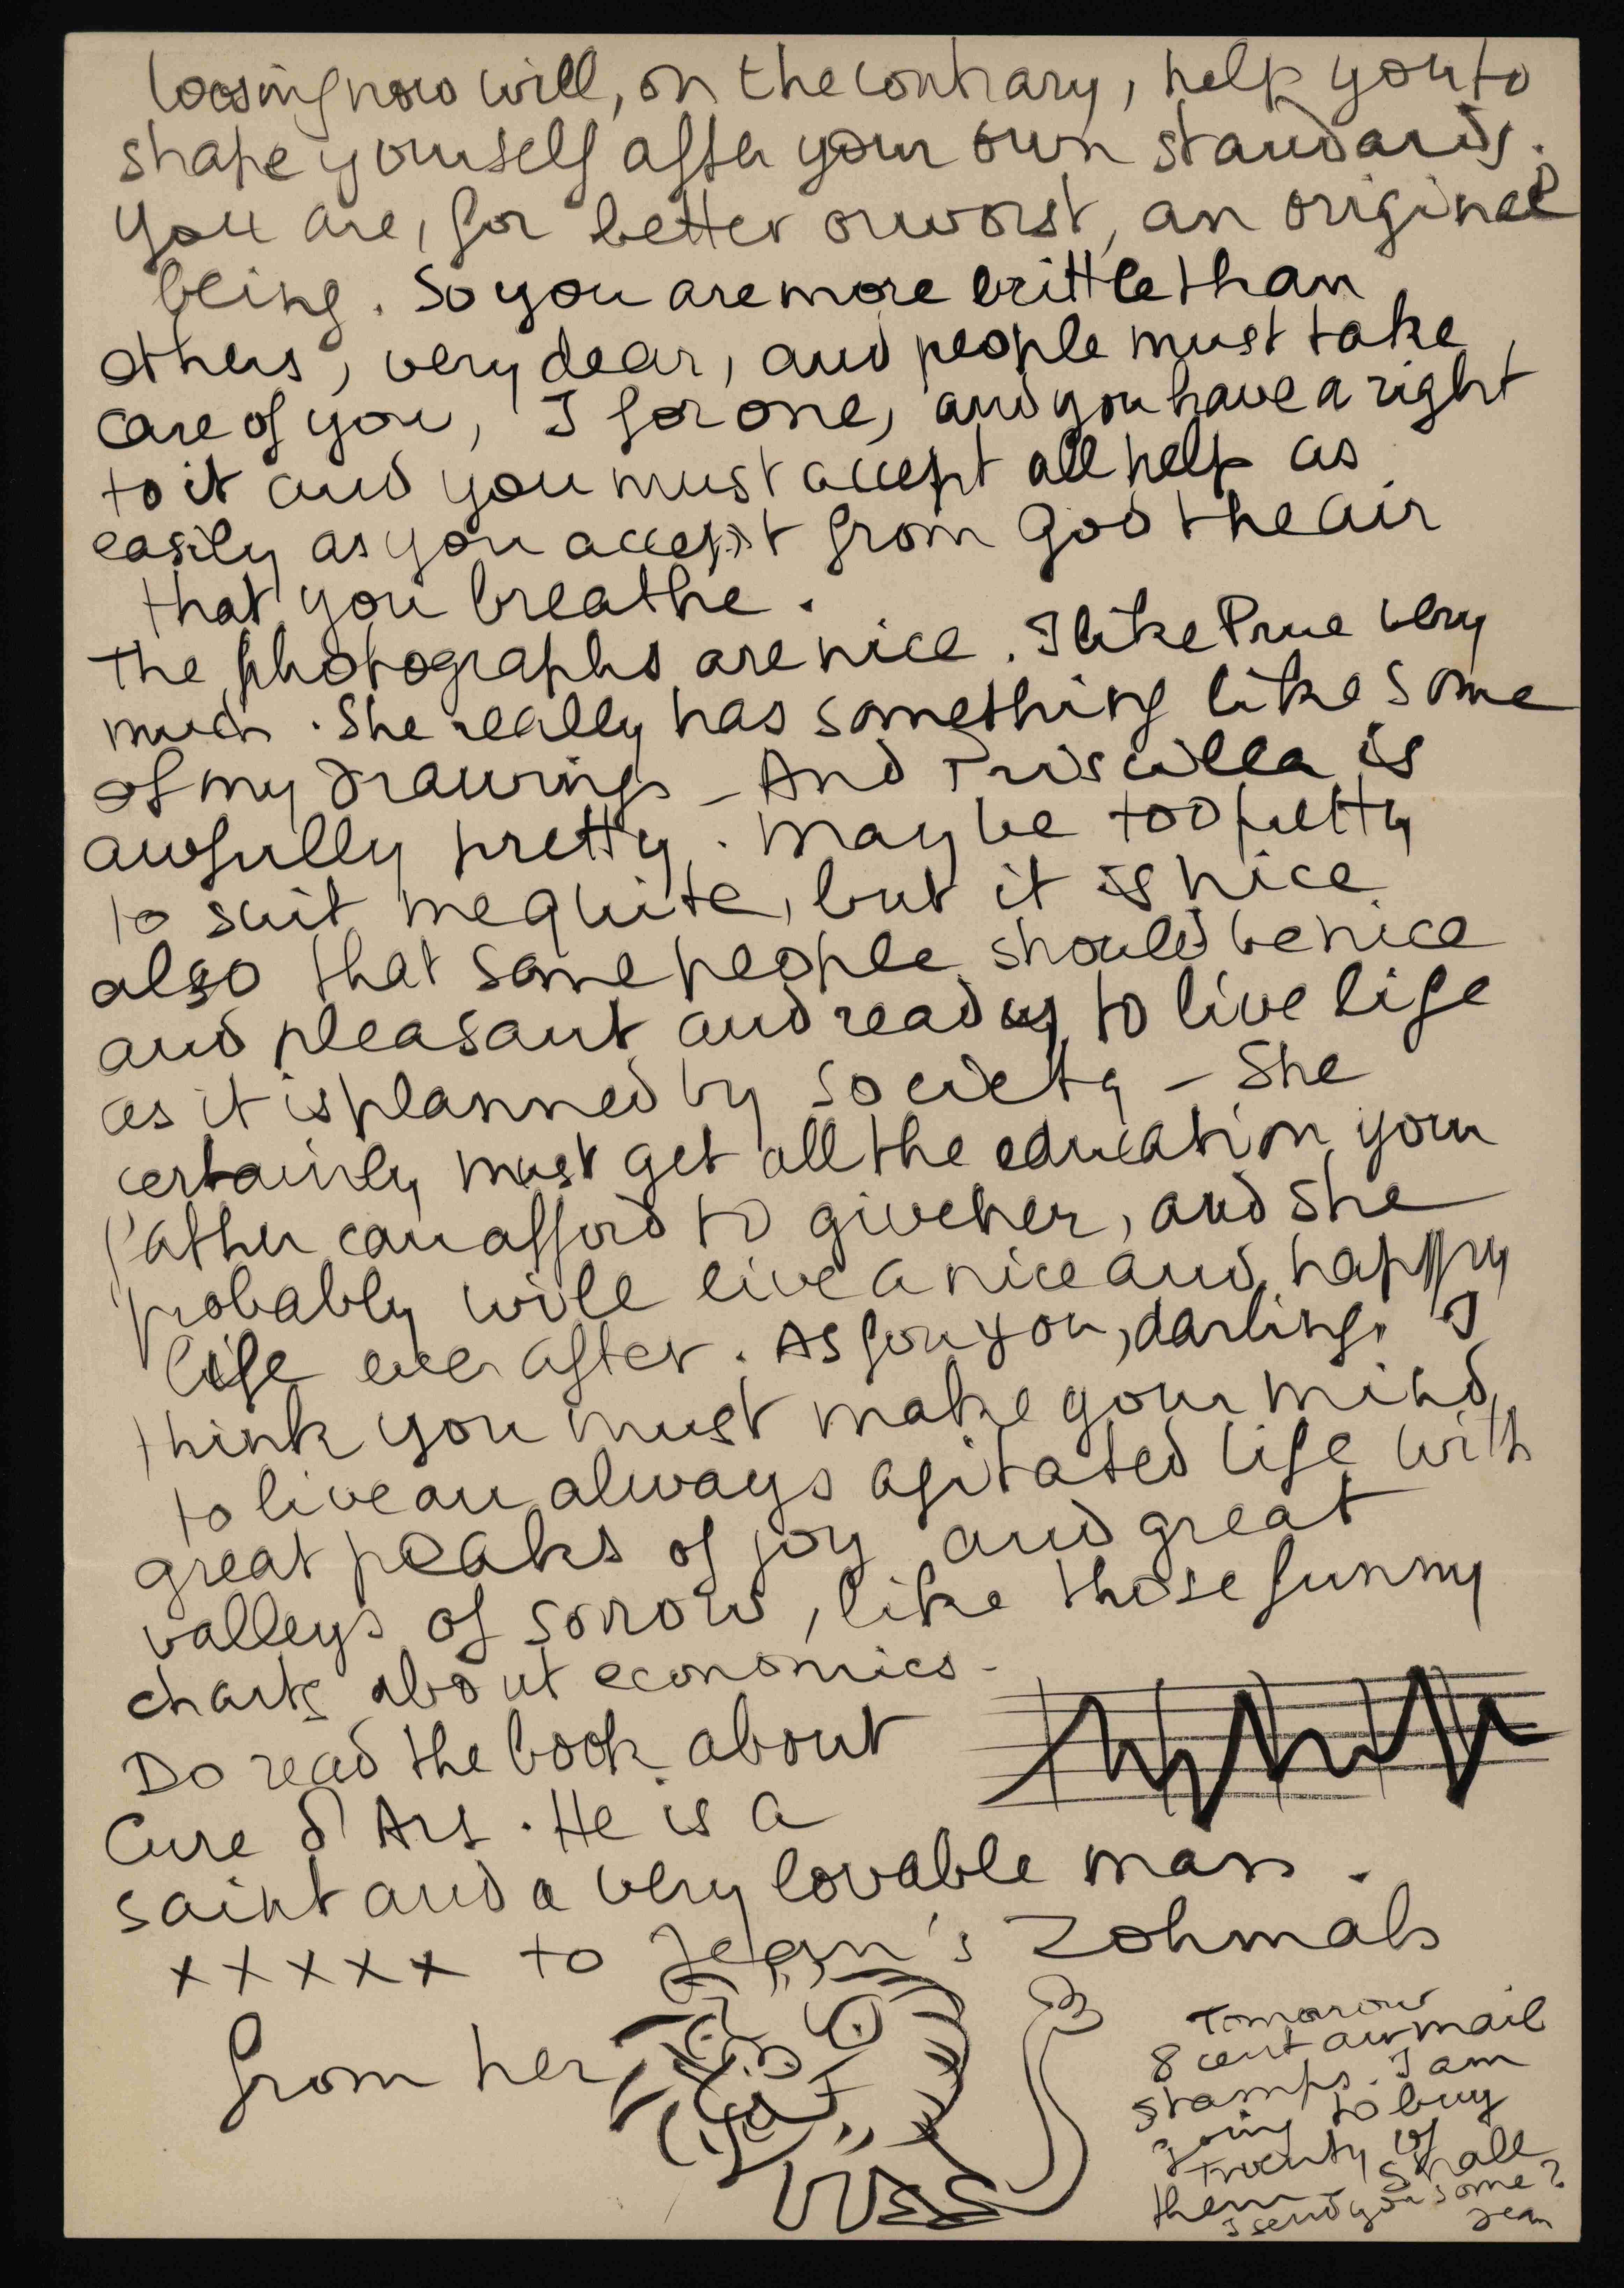 loosing now will, on the contrary, help you to
shape yourself after your own standards.
You are, for better or worst, an original
being. So you are more brittle than
others, very dear, and people must take
care of you, I for one, and you have a right
to it and you must accept all help as
easily as you accept from God the air
that you breathe.
The photographs are nice. I like Prue very
much. She really has something like some
of my drawings - And Priscilla is
awfully pretty. Maybe too pretty
to suit me quite, but it is nice
also that some people should be nice
and pleasant and ready to live life
as it is planned by society - She
certainly must get all the education your
father can afford to give her, and she
probably will live a nice and happy
life ever after. As for you, darling, I
think you must make your mind
to live an always agitated life with
great peaks of joy and great
valleys of sorrow, like those funny
charts about economics -
Do read the book about
Cure d'Ars. He is a
saint and a very lovable man.
x x x x x to Jean's Zohmah
from her
Tomorow
8 cent airmail
stamps. I am
going to buy
twenty of
them - Shall
I send you some?
Jean